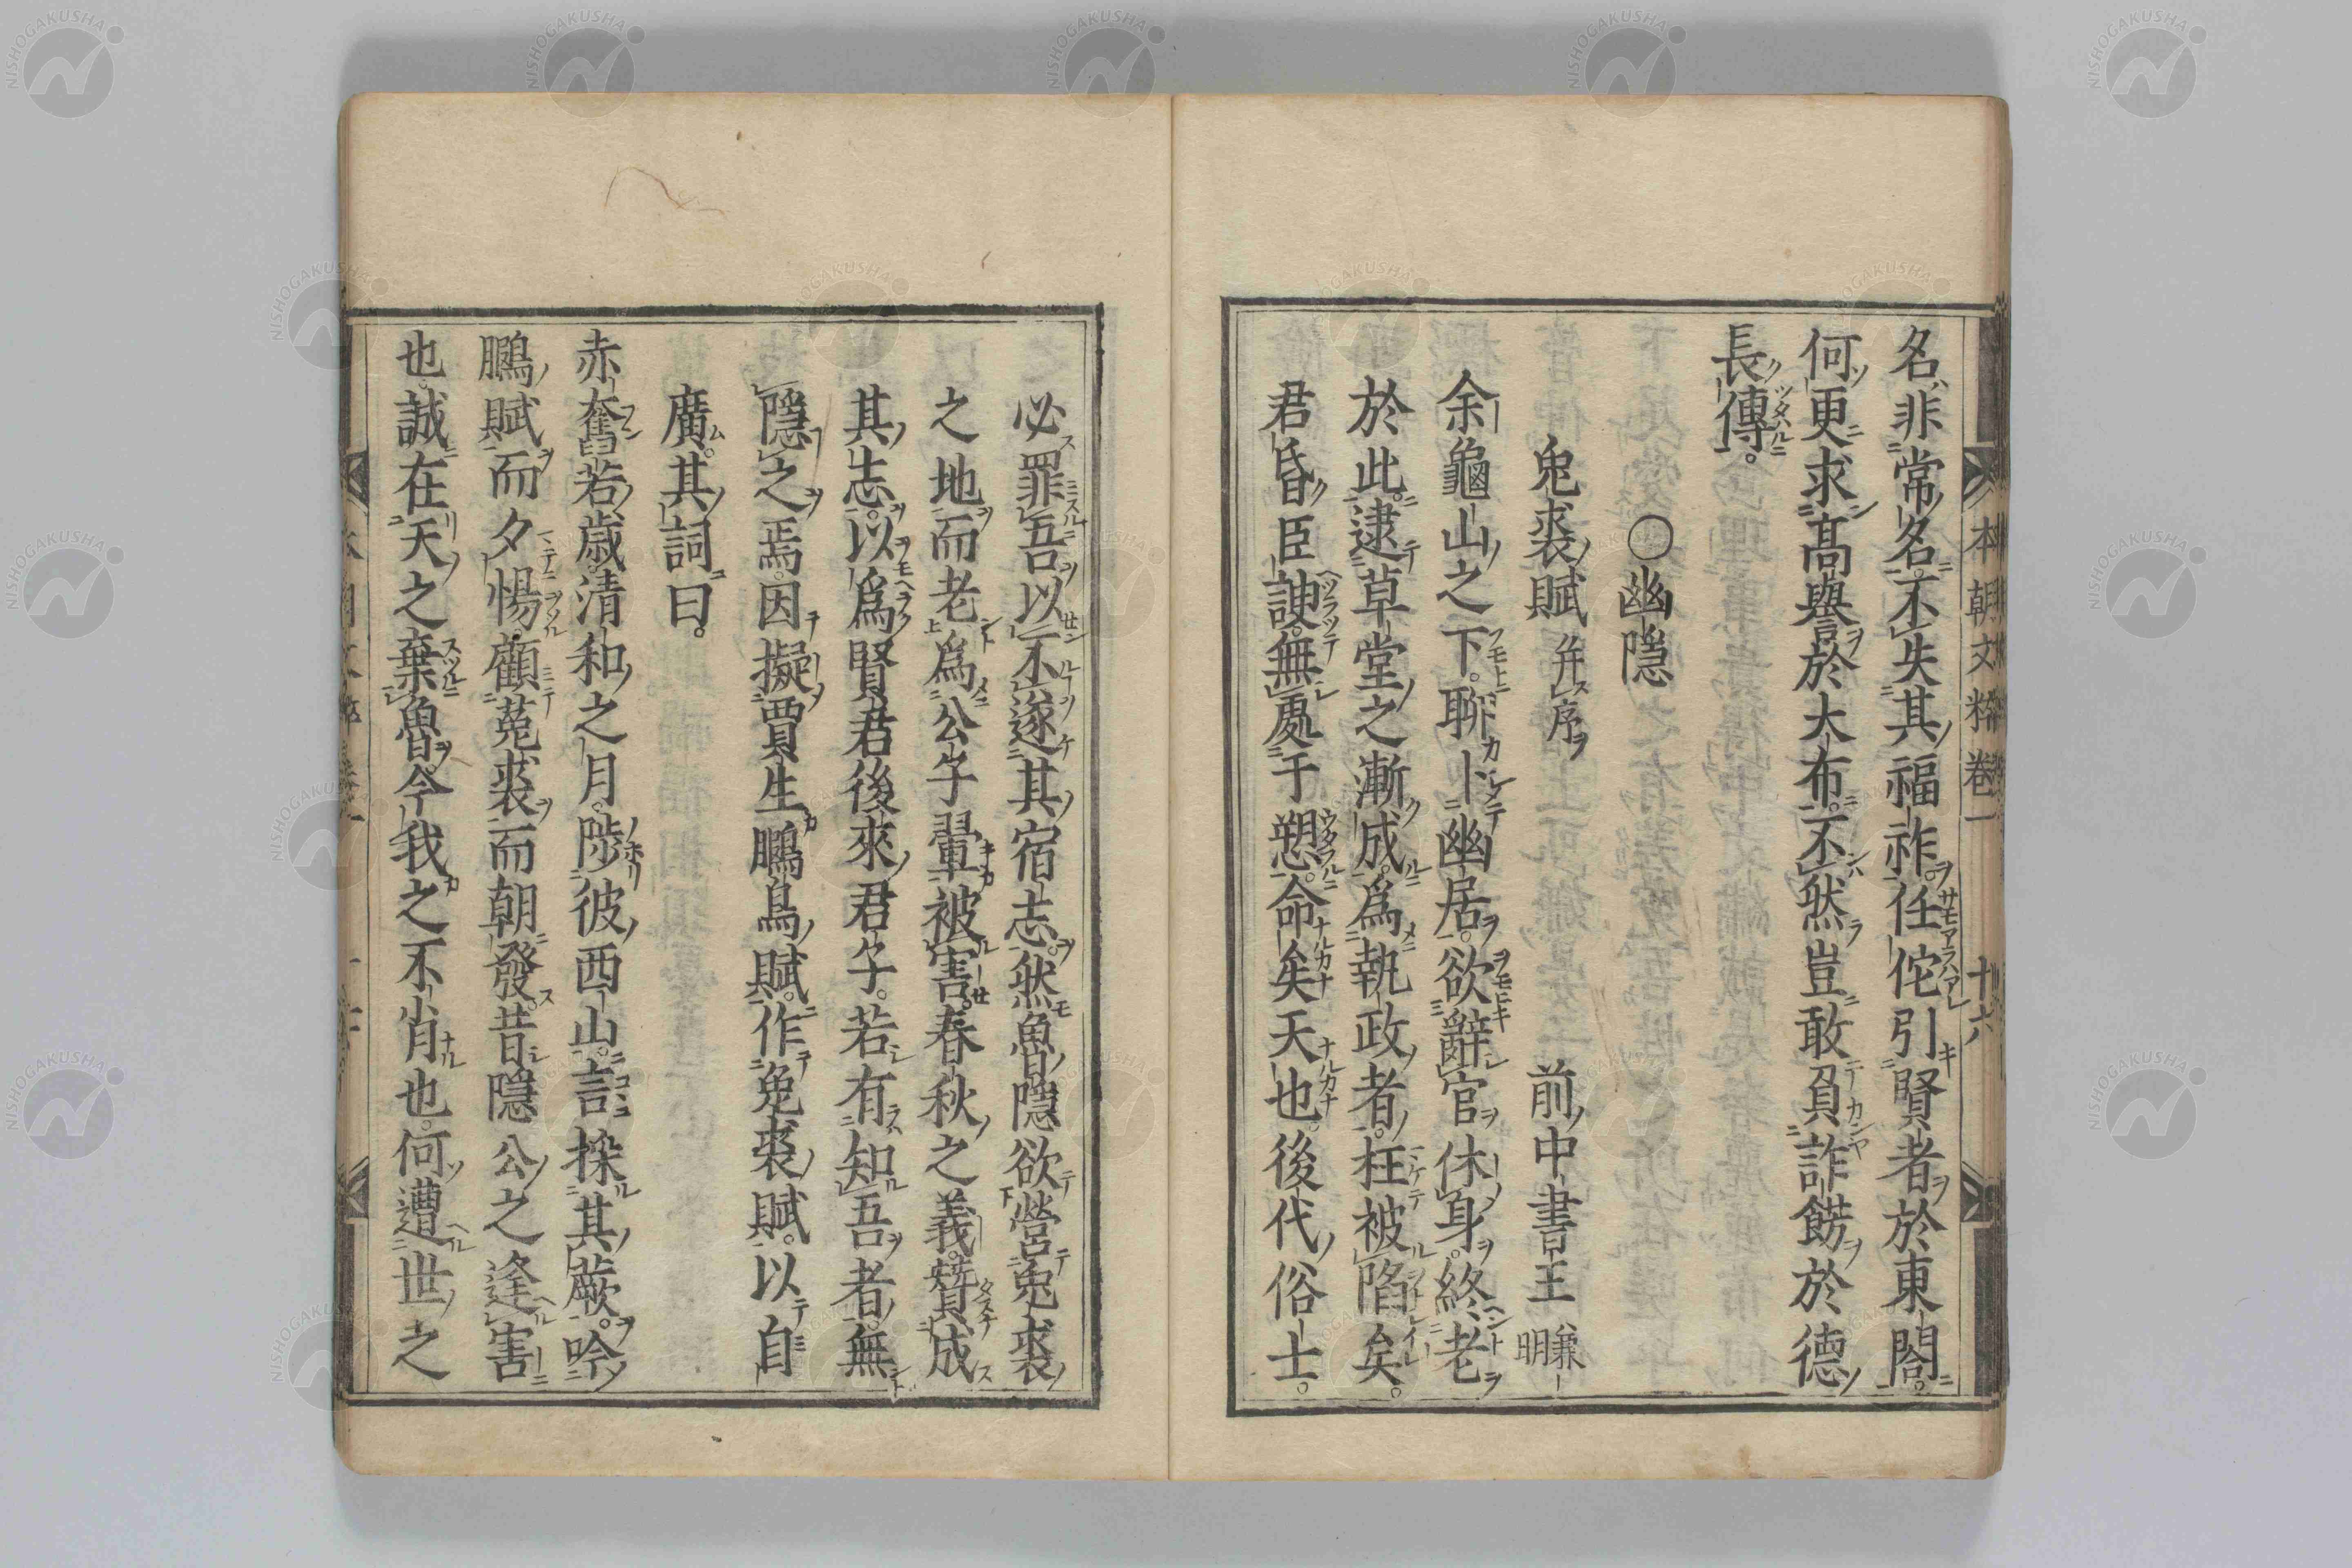 名非常名不失其福祚任佗引賢者於東閤
何更求高譽於大布不然豈敢負詐餝於德
長傳
〇幽隱
兎裘賦幷序 前中書王兼明
余龜山之下聊卜幽居欲辭官休身終老
於此逮草堂之漸成爲執政者枉被陷矣
君昏臣諛無處于愬命矣天也後代俗士
必罪吾以不遂其宿志然魯隱欲營兎裘
之地而老爲公子翬被害春秋之義賛成
其志以爲賢君後來君子若有知吾者無
隱之焉因擬賈生鵩鳥賦作兎裘賦以自
廣其詞曰
赤奮若歲清和之月陟彼西山言採其蕨吟
鵩賦而夕惕顧菟裘而朝發昔隱公之逢害
也誠在天之棄魯今我之不肖也何遭世之
本朝文粹卷一
十六
NISHOGAKUSHA